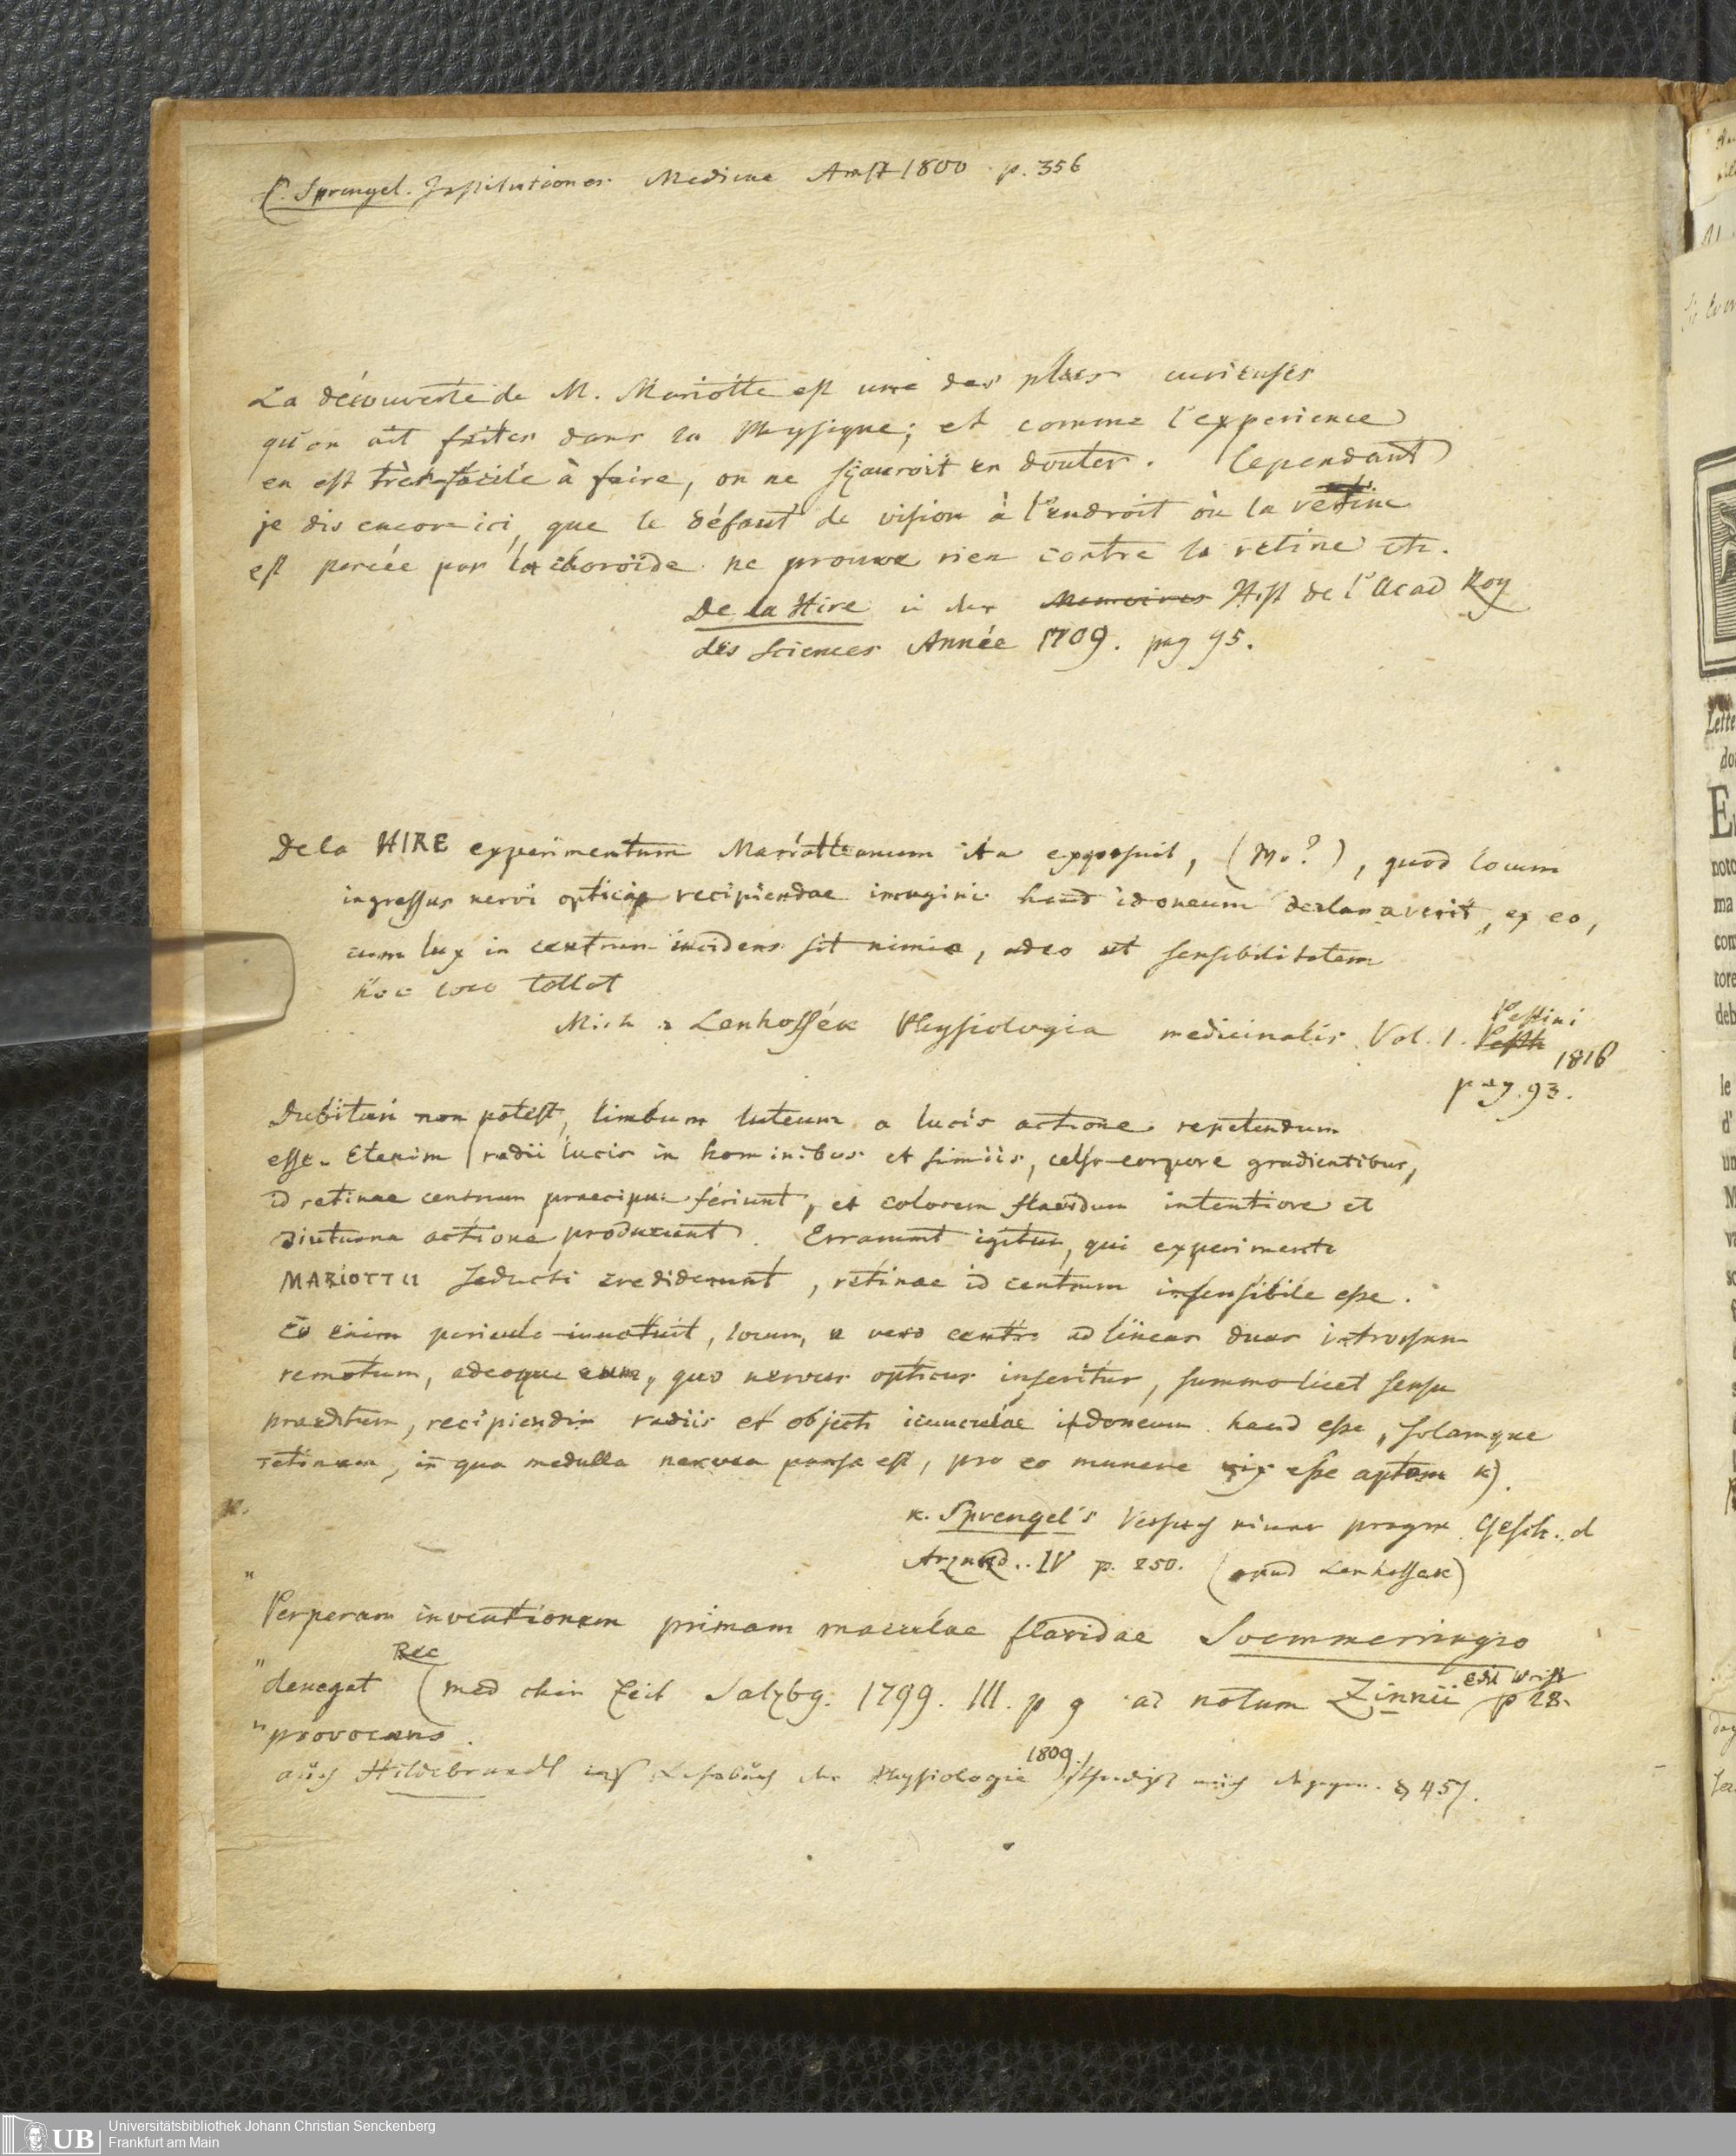 C. Sprengel. Institutiones Medicae Amst 1800 p. 356
La découverte de M. Mariotte est une des plus curieuses
qu'on ait faites dans la Physique; et comme l'experience
en est très-facile à faire, on ne sçauroit en douter. Cependant
je dis encore ici, que le défaut de vision à l'endroit où la retine
est percée par la choroïde ne prouve rien contre la retine etc.
De la Hire in der Memoires Hist de l'Acad Roy
des Sciences Année 1709. pag 95.
De la HIRE experimentum Mariotteanum ita exposuit, (Mo?), quod locum
ingressus nervi optici recipiendae imagini haud idoneum declaraverit, ex eo,
cum lux in centrum incidens sit nimia, adeo ut sensibilitatem
hoc loco tollat
Mich a Lenhossék Physiologia medicinalis Vol. 1. Pesth
Pestini
1816
pag. 93.
Dubitari non potest, limbum luteum a lucis actione repetendum
esse. Etenim radii lucis in hominibus et simiis, celso corpore gradientibus,
id retinae centrum praecipue feriunt, et colorem flavidum intentiore et
diuturna actione producunt. Errarunt igitur, qui experimento
MARIOTTII seducti crediderunt, retinae id centrum insensibile esse.
Eo enim periculo innotuit, locum, a vero centro ad lineas duas introrsum
remotum, adeoque eum, quo nervus opticus inseritur, summo licet sensu
praeditum, recipiendis radiis et objecti icunculae idoneum haud esse, solamque
retinam, in qua medulla nervea pansa est, pro eo munere vix esse aptam k).
K. Sprengel's Versuch einer pragm Gesch. d
Arznkd.. IV p. 250. (apud Lenhossek)
" Perperam inventionem primam maculae flavidae Soemmerringio
" denegat Rec (med chir Zeit Salzbg. 1799. III. p 9 ad notum Zinnii edit Wrisb p 28.
" provocans.
auch Hildebrandt ins Lehrbuch der Physiologie 1809. § 457.